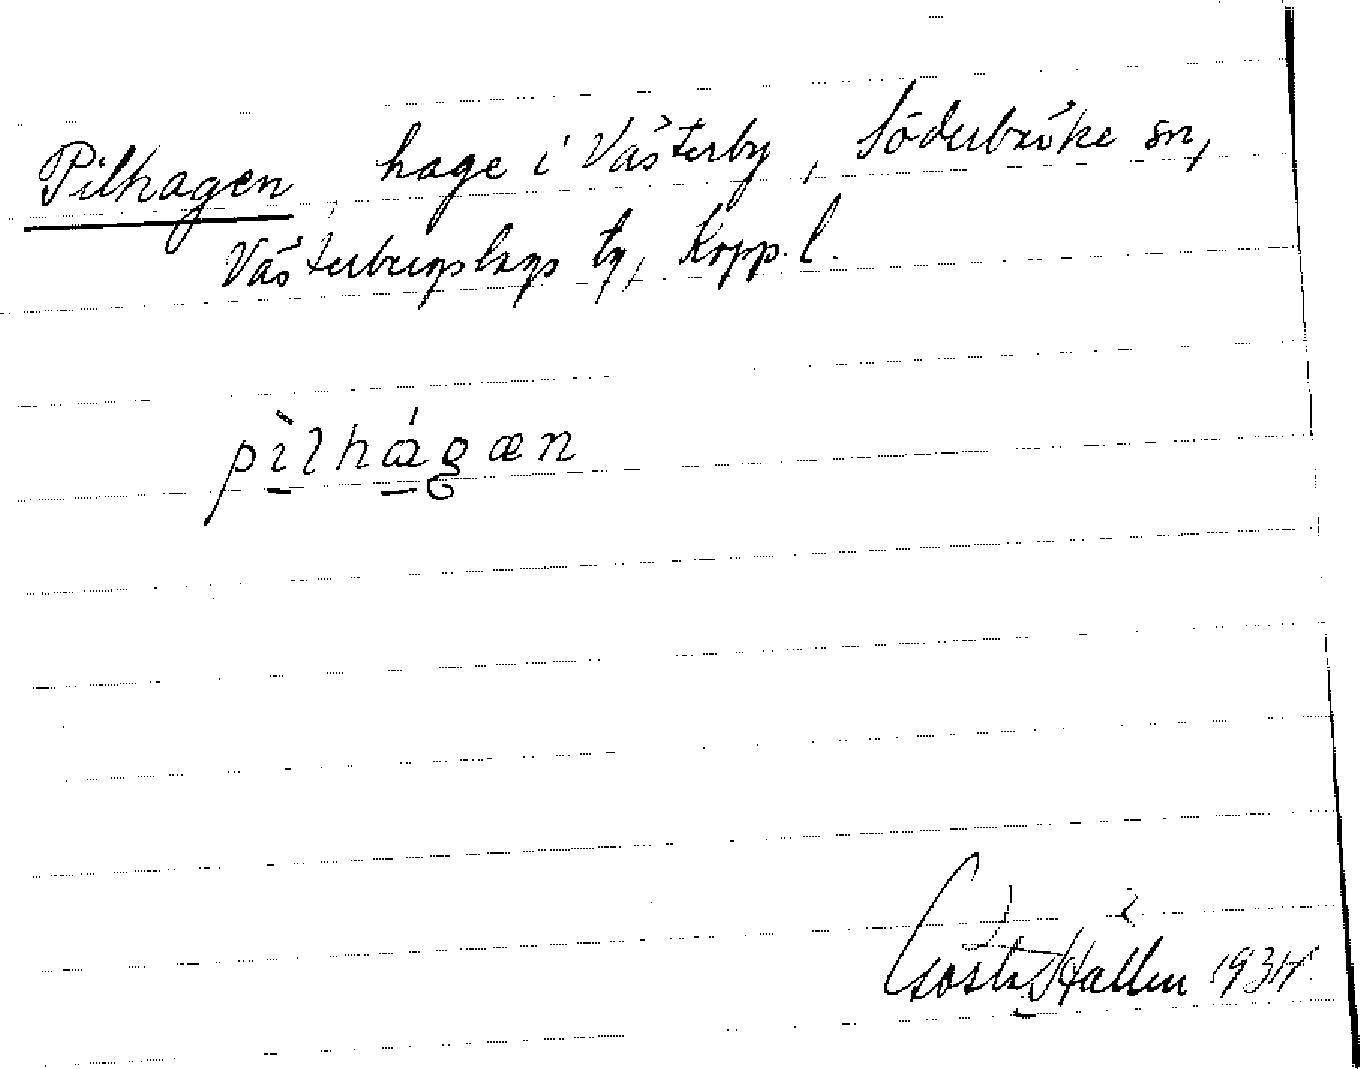 Pilhagen, hage i Västerby, Söderbärke sn,
Västerbergslags tg, Kopp. l.
pìlhágæn
Gösta Hallén 1934